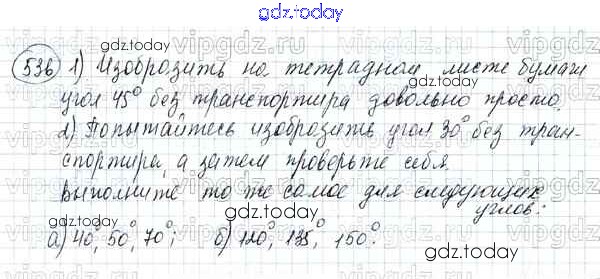 gdz.today
536 1) Изобразить на тетрадном листе бумаги
угол 45° без транспортира довольно просто.
2) Попытайтесь изобразить угол 30° без тран-
спортира, а затем проверьте себя.
Выполните то же самое для следующих
углов:
а) 40°, 50°, 70°; б) 120°, 135°, 150°.